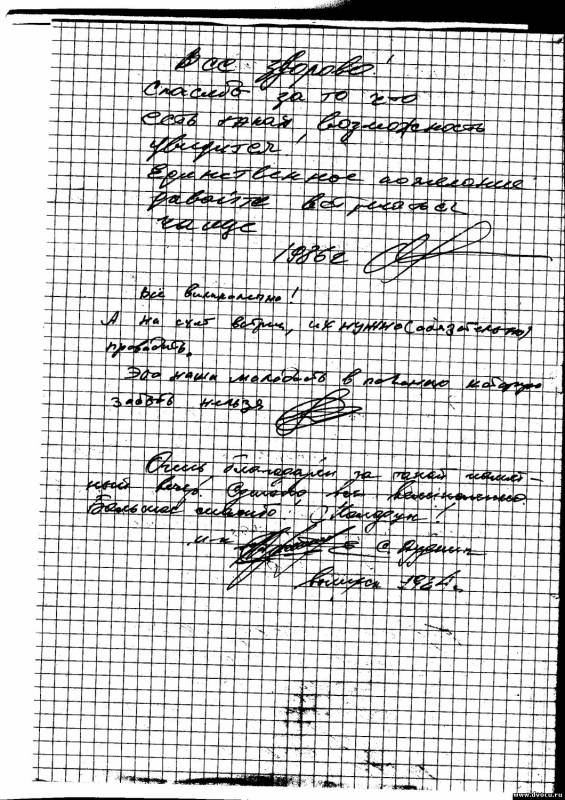 Все здорово!
Спасибо за то что
есть такая возможность
увидится!
Единственное пожелание
давайте встречаться
чаще
1986г
Всё великолепно!
А на счёт встреч, их нужно (обязательно)
проводить.
Это наша молодость в которую
забыть нельзя
Очень благодарен за такой памят-
ный вечер. Здорово, все великолепно.
Большое спасибо!
м-н С. Дудник
выпуск 1984г.
www.dvocu.ru